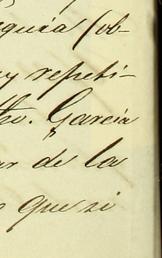 equia (ob-
y repeti-
tho. Garcia
ar de la
que si